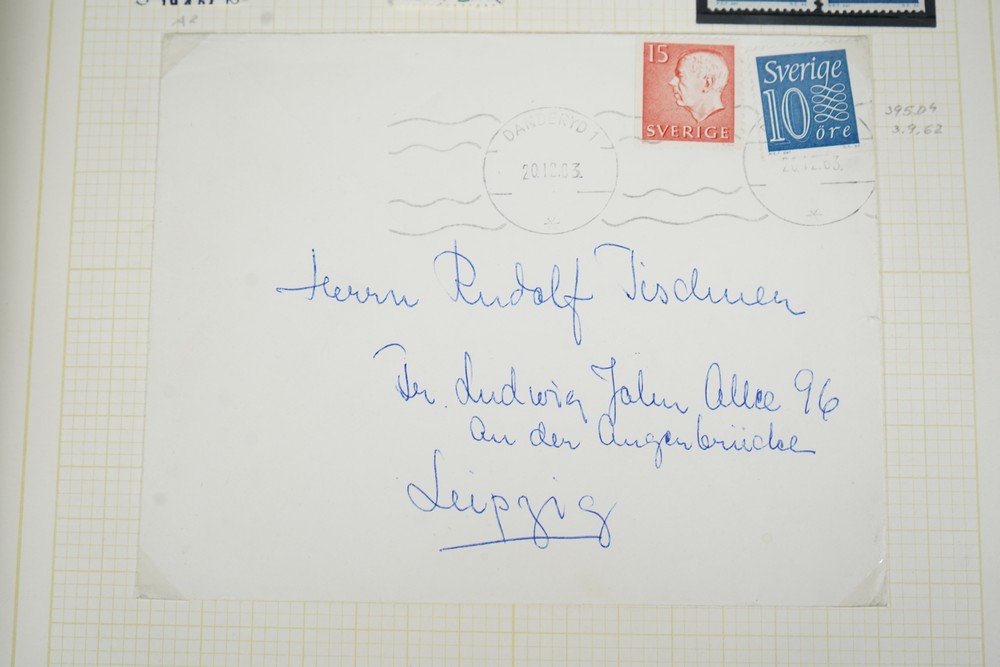 15
SVERIGE
Sverige
10
öre
395D4
3.9.62
DANDERYD 1
20.12.63.
20.12.63.
Herrn Rudolf Tischmer
Fr. Ludwig Jahn Allee 96
An der Angerbrücke
Leipzig